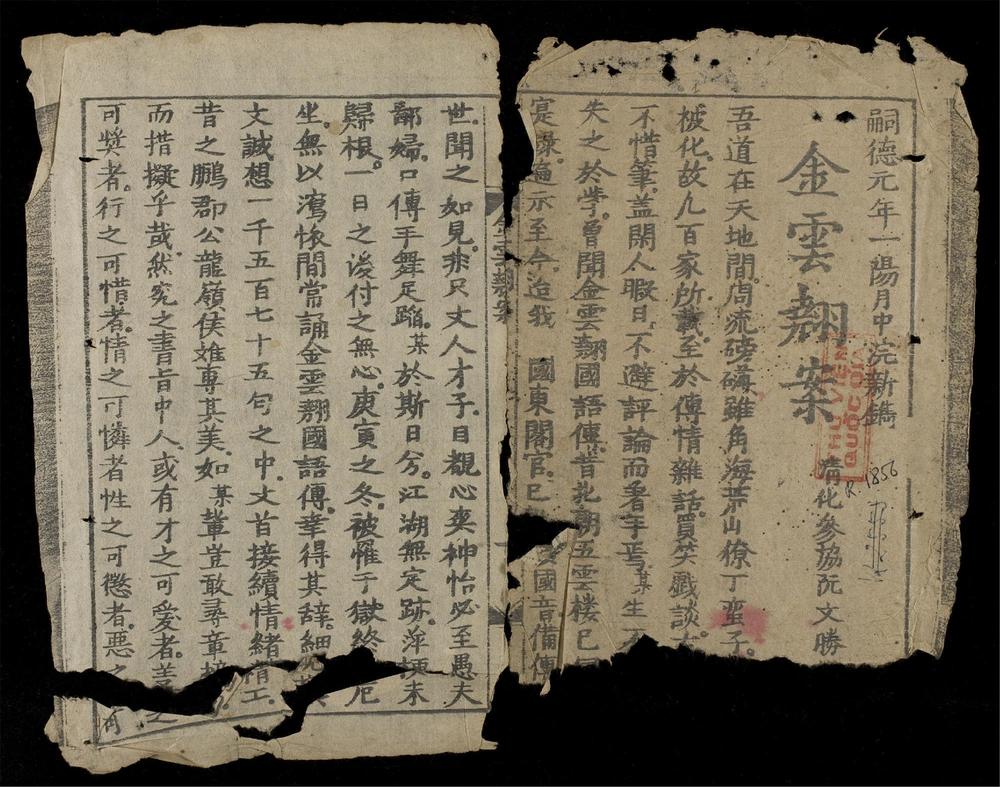 嗣德元年一陽月中浣新鐫
金雲翹案
清化參協阮文勝
吾道在天地間周流磅礴雖角海荒山僚丁蛮子
被化故九百家所載至於傳情雜話買笑戲談
不惜筆盖閑人暇日不避評論而著字焉某生
失之於学曾聞金雲翹國語傳昔北朝五雲楼已
寔錄遍示至今迨我 國東閣官已 國音備傳
金雲翹案
世聞之如見非尺丈人才子目覩心爽神怡必至愚夫
鄙婦口傳手舞足蹈某於斯日兮江湖無定跡萍梗未
歸根一日之後付之無心庚寅之冬被罹于獄終 尼
坐無以瀉懷間常誦金雲翹國語傳幸得其辞細
文誠想一千五百七十五句之中丈首接續情緒精工
昔之鵬郡公龍嶺侯雄專其美如某輩豈敢尋章摘
而措擬乎哉然究之書旨中人或有才之可愛者善之
可奬者行之可惜者情之可憐者性之可懲者惡之可
THƯ VIỆN
QUỐC GIA
R.1856